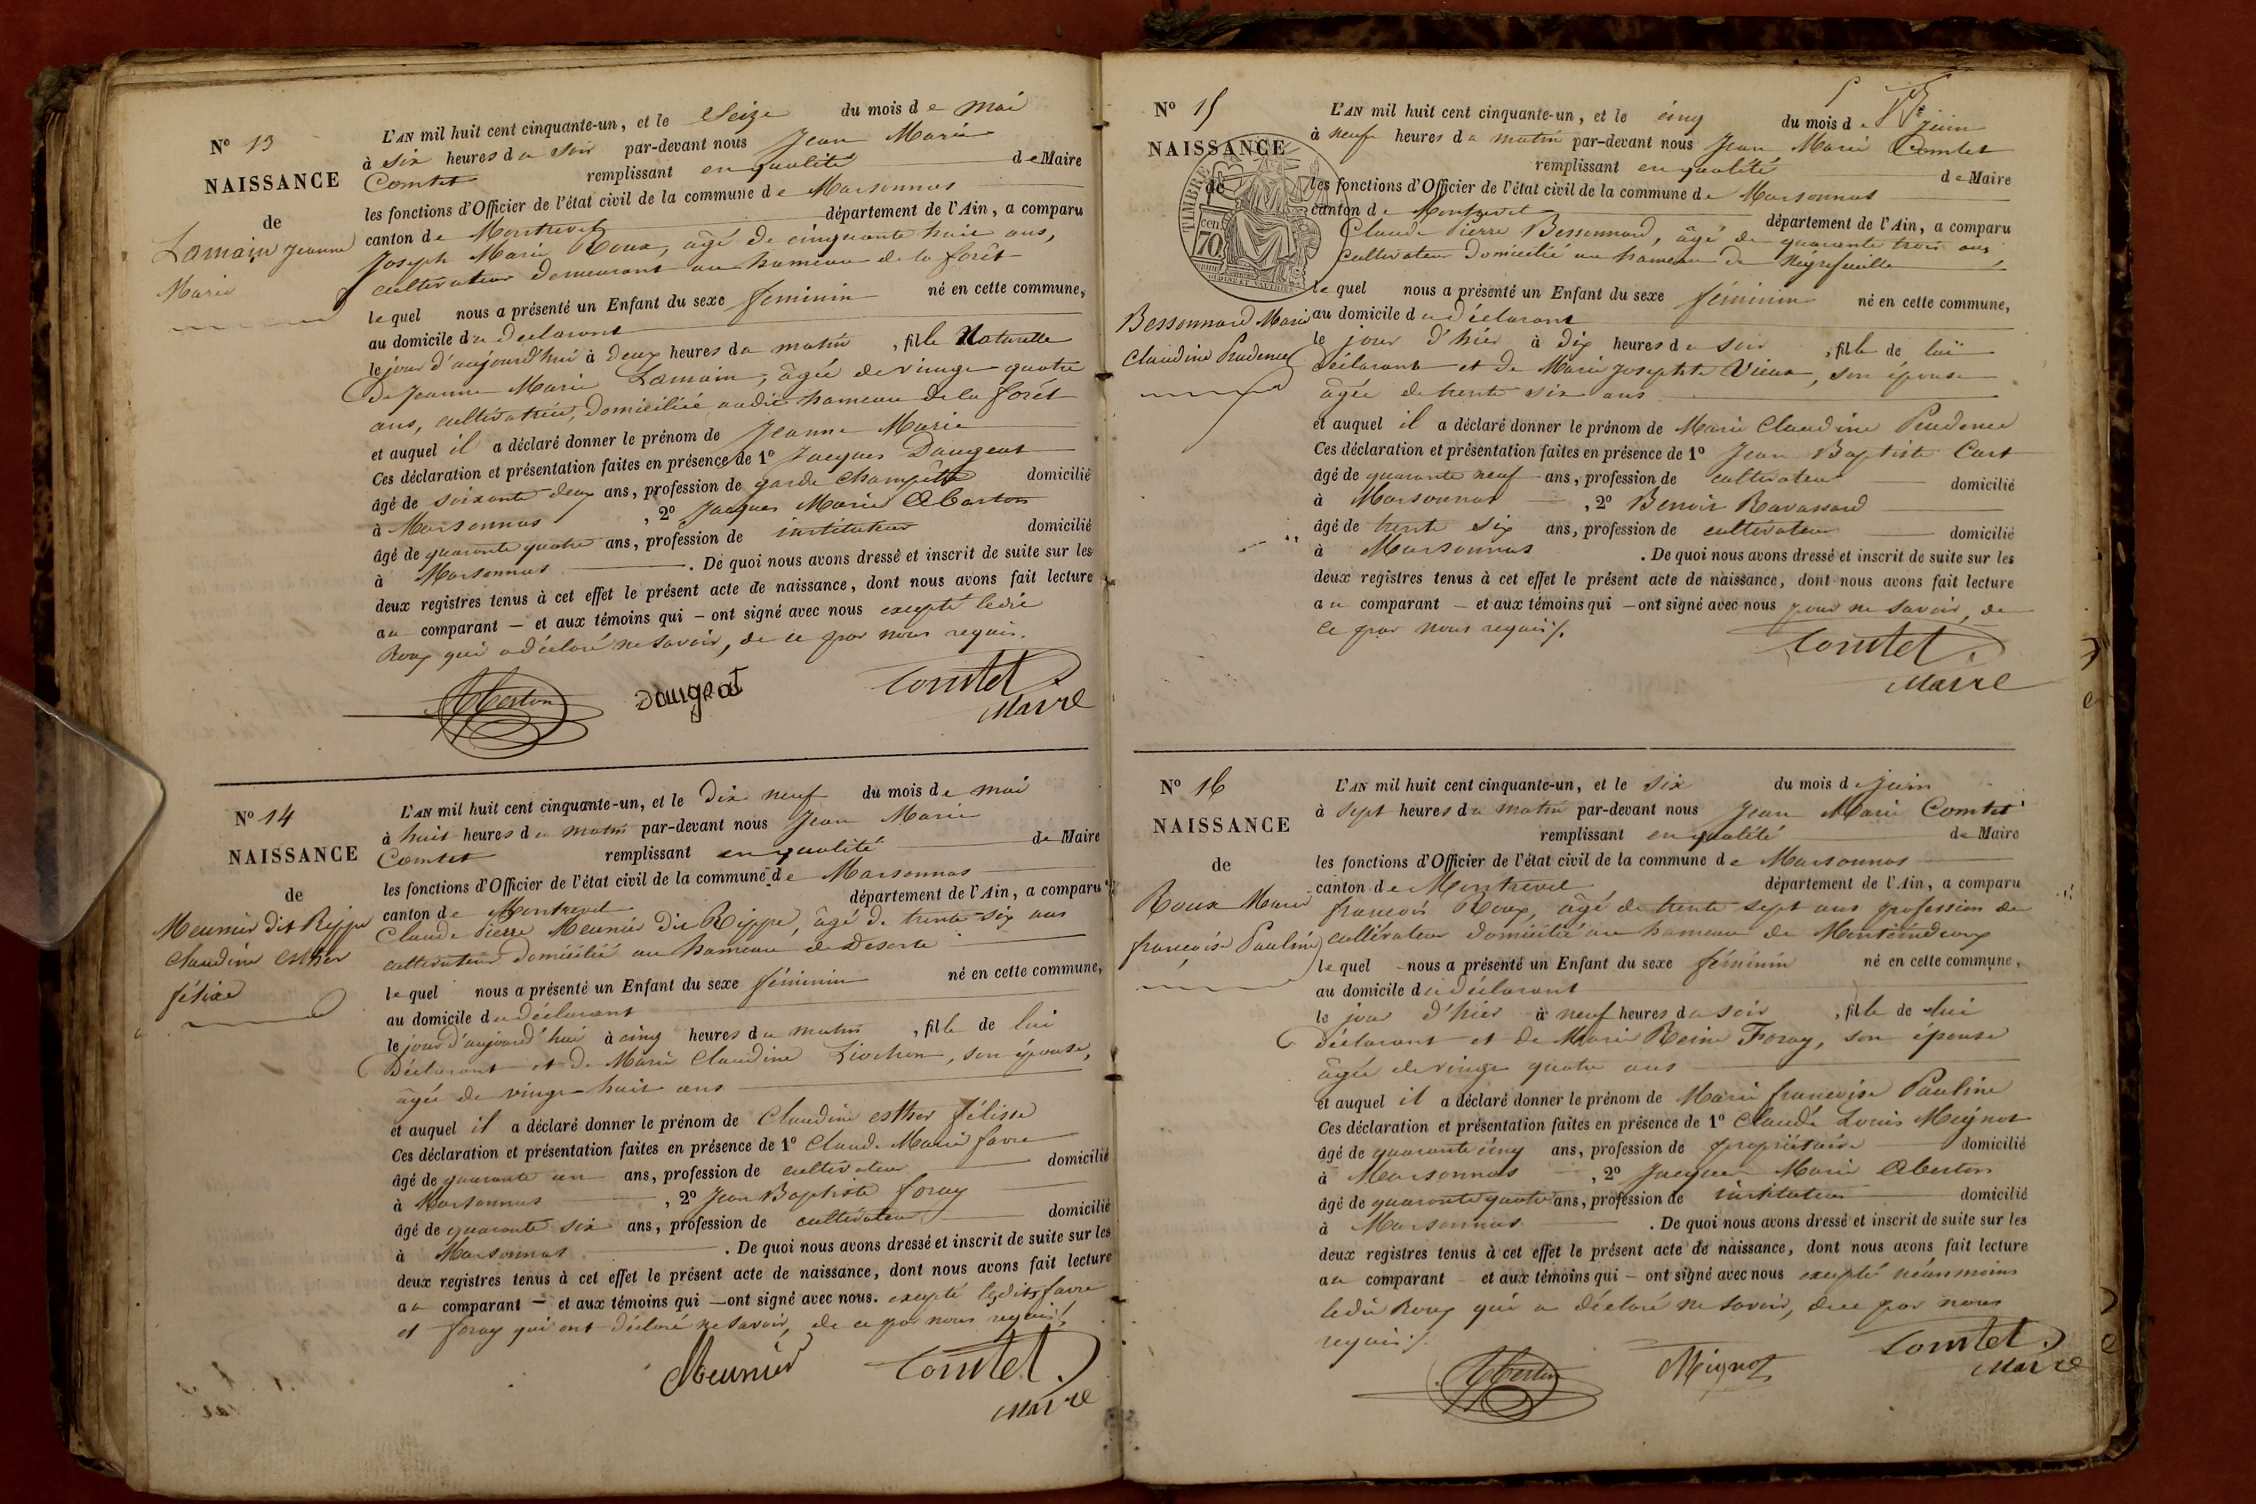 N° 13
NAISSANCE
de
Lamain Jeanne
Marie
L'AN mil huit cent cinquante-un, et le Seize du mois de mai
à six heures du soir par-devant nous Jean Marie
Comtet remplissant en qualité de Maire
les fonctions d'Officier de l'état civil de la commune de Marsonnas
canton de Montrevel département de l'Ain, a comparu
Joseph Marie Roux, âgé de cinquante huit ans,
cultivateur demeurant au hameau de la forêt
lequel nous a présenté un Enfant du sexe féminin né en cette commune,
au domicile du déclarant
le jour d'aujourd'hui à deux heures du matin, fille Naturelle
De Jeanne Marie Lamain, âgée de vingt quatre
ans, cultivatrice, domiciliée audit hameau de la forêt
et auquel il a déclaré donner le prénom de Jeanne Marie
Ces déclaration et présentation faites en présence de 1° Jacques Daugeat
âgé de soixante deux ans, profession de garde champêtre domicilié
à Marsonnas, 2° Jacques Marie Alberton
âgé de quarante quatre ans, profession de instituteur domicilié
à Marsonnas. De quoi nous avons dressé et inscrit de suite sur les
deux registres tenus à cet effet le présent acte de naissance, dont nous avons fait lecture
au comparant – et aux témoins qui – ont signé avec nous excepté ledit
Roux qui a déclaré ne savoir, de ce par nous requis.
Alberton Daugeat Comtet
Maire
N° 14
NAISSANCE
de
Meunier dit Rippe
Claudine Esther
félixe
L'AN mil huit cent cinquante-un, et le Dix neuf du mois de mai
à huit heures du matin par-devant nous Jean Marie
Comtet remplissant en qualité de Maire
les fonctions d'Officier de l'état civil de la commune de Marsonnas
canton de Montrevel département de l'Ain, a comparu
Claude Pierre Meunier Dit Rippe, âgé de trente six ans
cultivateur domicilié au hameau de Deserte
lequel nous a présenté un Enfant du sexe féminin né en cette commune,
au domicile du déclarant
le jour d'aujourd'hui à cinq heures du matin, fille de lui
Déclarant et de Marie Claudine Liochon, son épouse,
âgée de vingt-huit ans
et auquel il a déclaré donner le prénom de Claudine esther félisse
Ces déclaration et présentation faites en présence de 1° Claude Marie favre
âgé de quarante un ans, profession de cultivateur domicilié
à Marsonnas, 2° Jean Baptiste foray
âgé de quarante six ans, profession de cultivateur domicilié
à Marsonnas. De quoi nous avons dressé et inscrit de suite sur les
deux registres tenus à cet effet le présent acte de naissance, dont nous avons fait lecture
au comparant – et aux témoins qui – ont signé avec nous. excepté lesdits favre
et foray qui ont déclaré ne savoir, de ce par nous requis.
Meunier Comtet
Maire
N° 15
NAISSANCE
de
TIMBRE
70 cen
Bessonnard Marie
Claudine Prudence
L'AN mil huit cent cinquante-un, et le cinq du mois de juin
à neuf heures du matin par-devant nous Jean Marie Comtet
remplissant en qualité de Maire
les fonctions d'Officier de l'état civil de la commune de Marsonnas
canton de Montrevel département de l'Ain, a comparu
Claude Pierre Bessonnard, âgé de quarante trois ans,
cultivateur domicilié au hameau de Négrefeuille
lequel nous a présenté un Enfant du sexe féminin né en cette commune,
au domicile du déclarant
le jour d'hier à dix heures du soir, fille de lui
déclarant et de Marie Josephte Vieux, son épouse
âgée de trente six ans
et auquel il a déclaré donner le prénom de Marie Claudine Prudence
Ces déclaration et présentation faites en présence de 1° Jean Baptiste Curt
âgé de quarante neuf ans, profession de cultivateur domicilié
à Marsonnas, 2° Benoit Ravassard
âgé de trente six ans, profession de cultivateur domicilié
à Marsonnas. De quoi nous avons dressé et inscrit de suite sur les
deux registres tenus à cet effet le présent acte de naissance, dont nous avons fait lecture
au comparant – et aux témoins qui – ont signé avec nous pour ne savoir, de
ce par nous requis/.
Comtet
Maire
N° 16
NAISSANCE
de
Roux Marie
françoise Pauline
L'AN mil huit cent cinquante-un, et le six du mois de juin
à sept heures du matin par-devant nous Jean Marie Comtet
remplissant en qualité de Maire
les fonctions d'Officier de l'état civil de la commune de Marsonnas
canton de Montrevel département de l'Ain, a comparu
françois Roux, âgé de trente sept ans profession de
cultivateur domicilié au hameau de
lequel – nous a présenté un Enfant du sexe féminin né en cette commune,
au domicile du déclarant
le jour d'hier à neuf heures du soir, fille de lui
déclarant et de Marie Reine Foray, son épouse
âgée de vingt quatre ans
et auquel il a déclaré donner le prénom de Marie françoise Pauline
Ces déclaration et présentation faites en présence de 1° Claude Louis Mignot
âgé de quarante cinq ans, profession de propriétaire domicilié
à Marsonnas, 2° Jacques Marie Alberton
âgé de quarante quatre ans, profession de instituteur domicilié
à Marsonnas. De quoi nous avons dressé et inscrit de suite sur les
deux registres tenus à cet effet le présent acte de naissance, dont nous avons fait lecture
au comparant et aux témoins qui – ont signé avec nous excepté néanmoins
ledit Roux qui a déclaré ne savoir, de ce par nous
requis/.
Alberton Mignot Comtet
Maire